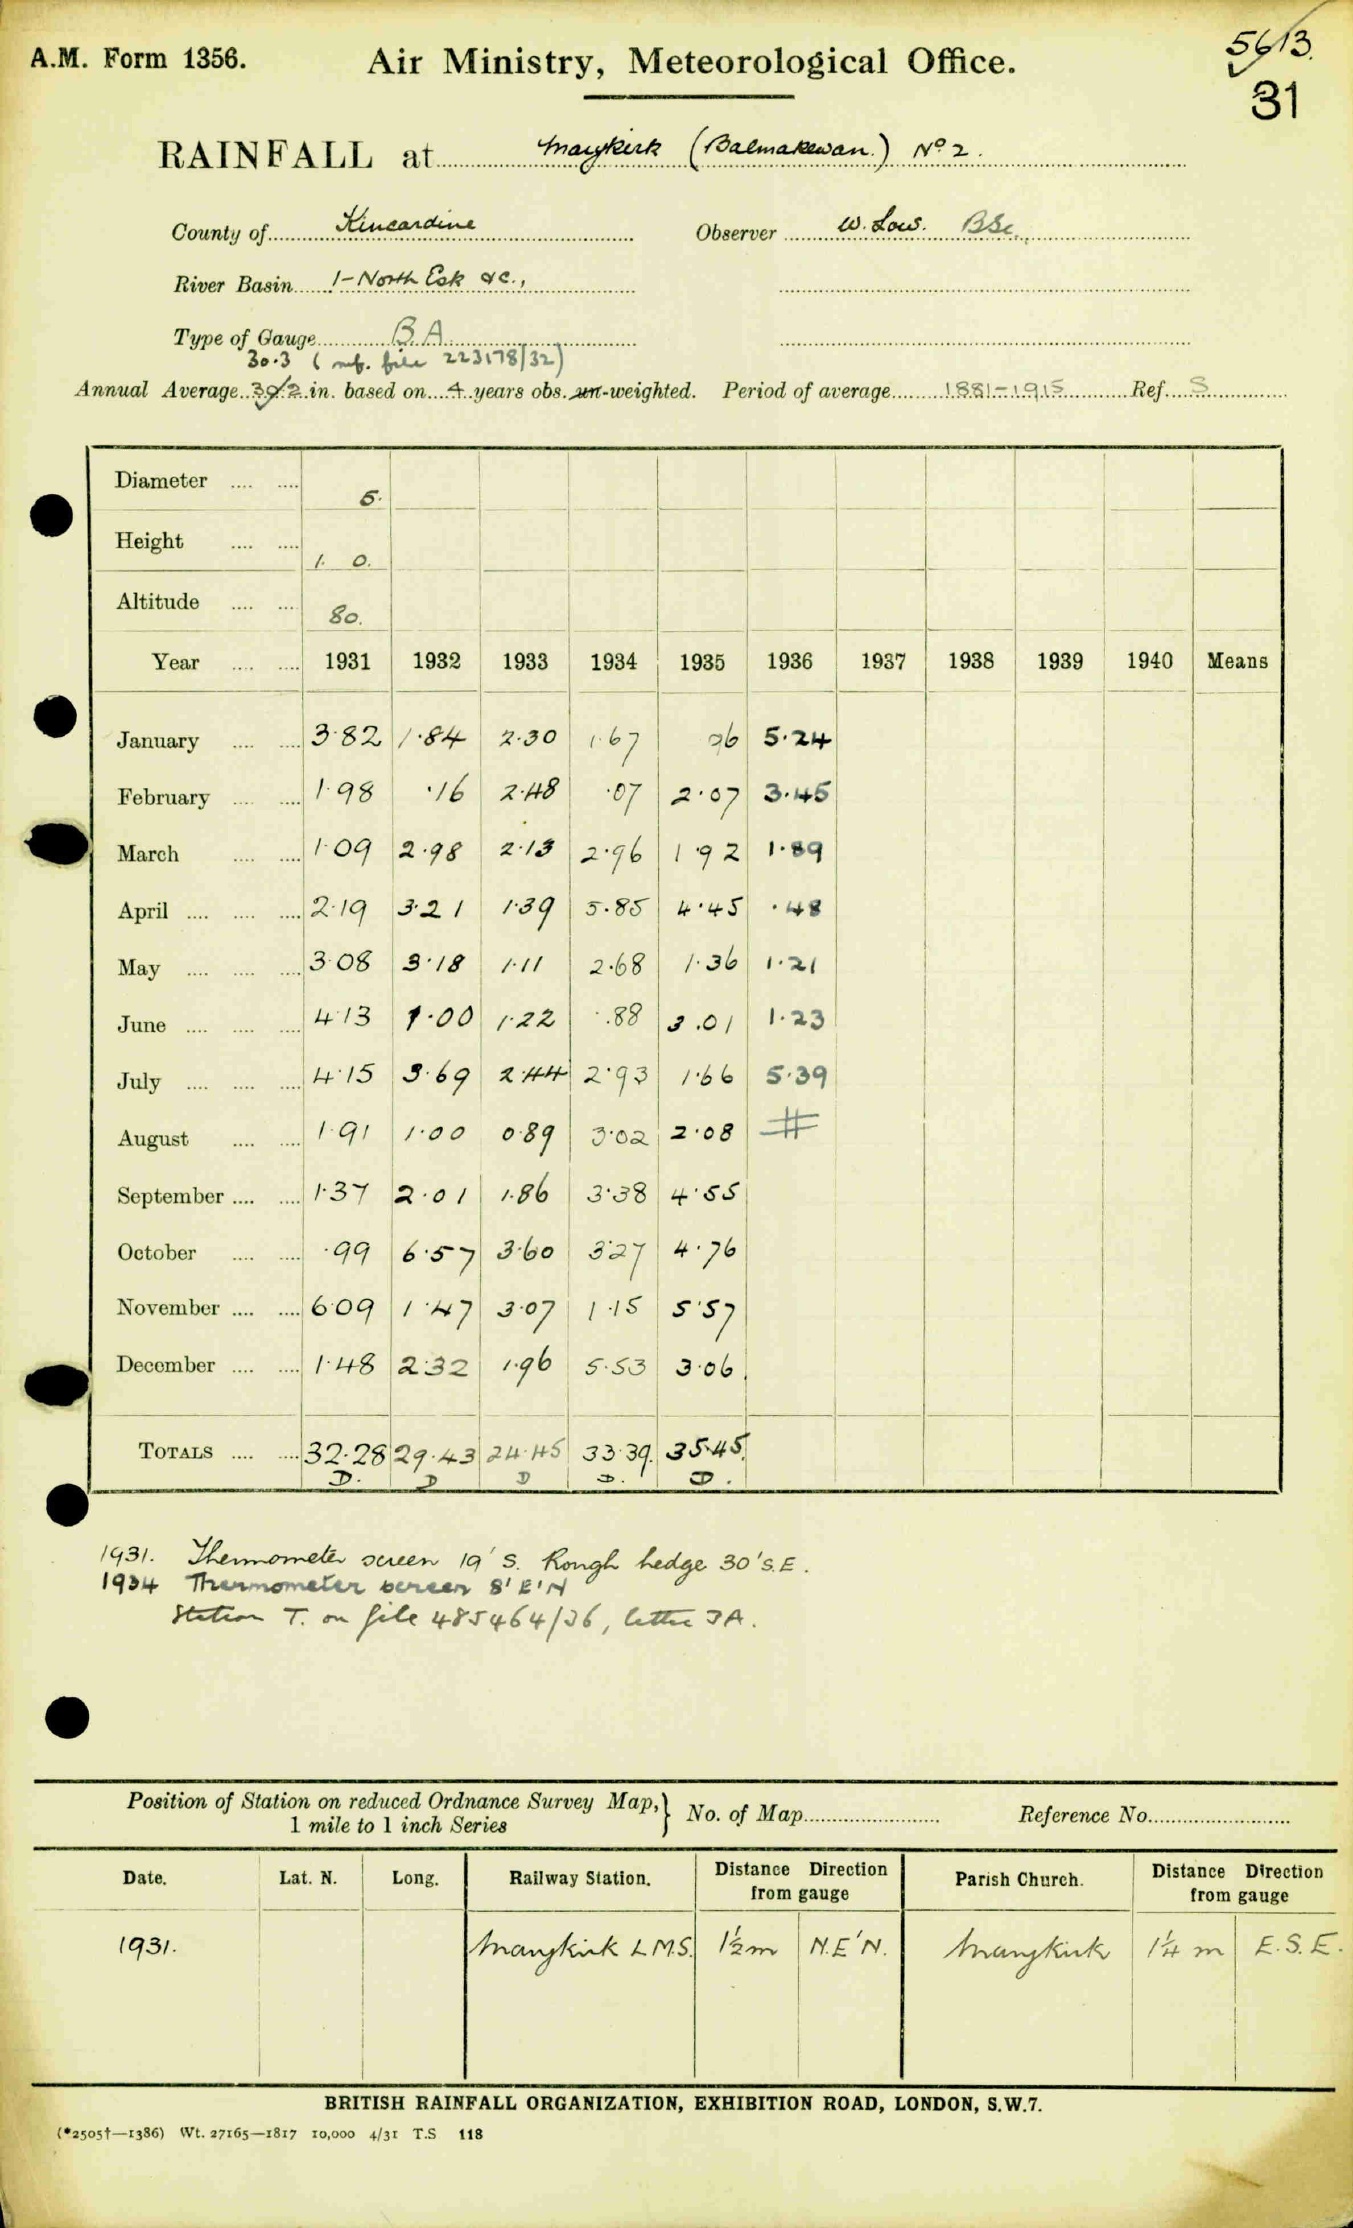 A.M. Form 1356. Air Ministry, Meteorological Office. 5613.
31
RAINFALL at Marykirk (Balmakewan.) No 2.
County of Kincardine Observer W. Low. BSc.,
River Basin 1-North Esk &c.,
Type of Gauge B A
30.3 (ref. file 223178/32)
Annual Average 30.2 in. based on 4 years obs. un-weighted. Period of average 1881-1915 Ref. S
Diameter 5.
Height 1. 0.
Altitude 80.
Year 1931 1932 1933 1934 1935 1936 1937 1938 1939 1940 Means
January 3.82 1.84 2.30 1.67 96 5.24
February 1.98 .16 2.48 .07 2.07 3.45
March 1.09 2.98 2.13 2.96 1.92 1.89
April 2.19 3.21 1.39 5.85 4.45 .48
May 3.08 3.18 1.11 2.68 1.36 1.21
June 4.13 1.00 1.22 .88 3.01 1.23
July 4.15 3.69 2.44 2.93 1.66 5.39
August 1.91 1.00 0.89 3.02 2.08
September 1.37 2.01 1.86 3.38 4.55
October .99 6.57 3.60 3.27 4.76
November 6.09 1.47 3.07 1.15 5.57
December 1.48 2.32 1.96 5.53 3.06
TOTALS 32.28 29.43 24.45 33.39. 35.45.
D. D D D. D.
1931. Thermometer screen 19' S. Rough hedge 30' S.E.
1934 Thermometer screen 8' E'N
Station T. on file 485464/36, letter 3A.
Position of Station on reduced Ordnance Survey Map, 1 mile to 1 inch Series } No. of Map Reference No.
Date. Lat. N. Long. Railway Station. Distance Direction from gauge Parish Church. Distance Direction from gauge
1931. Marykirk L.M.S. 1½m N.E'N. Marykirk 1¼ m E.S.E.
BRITISH RAINFALL ORGANIZATION, EXHIBITION ROAD, LONDON, S.W.7.
(*2505†—1386) Wt. 27165—1817 10,000 4/31 T.S 118